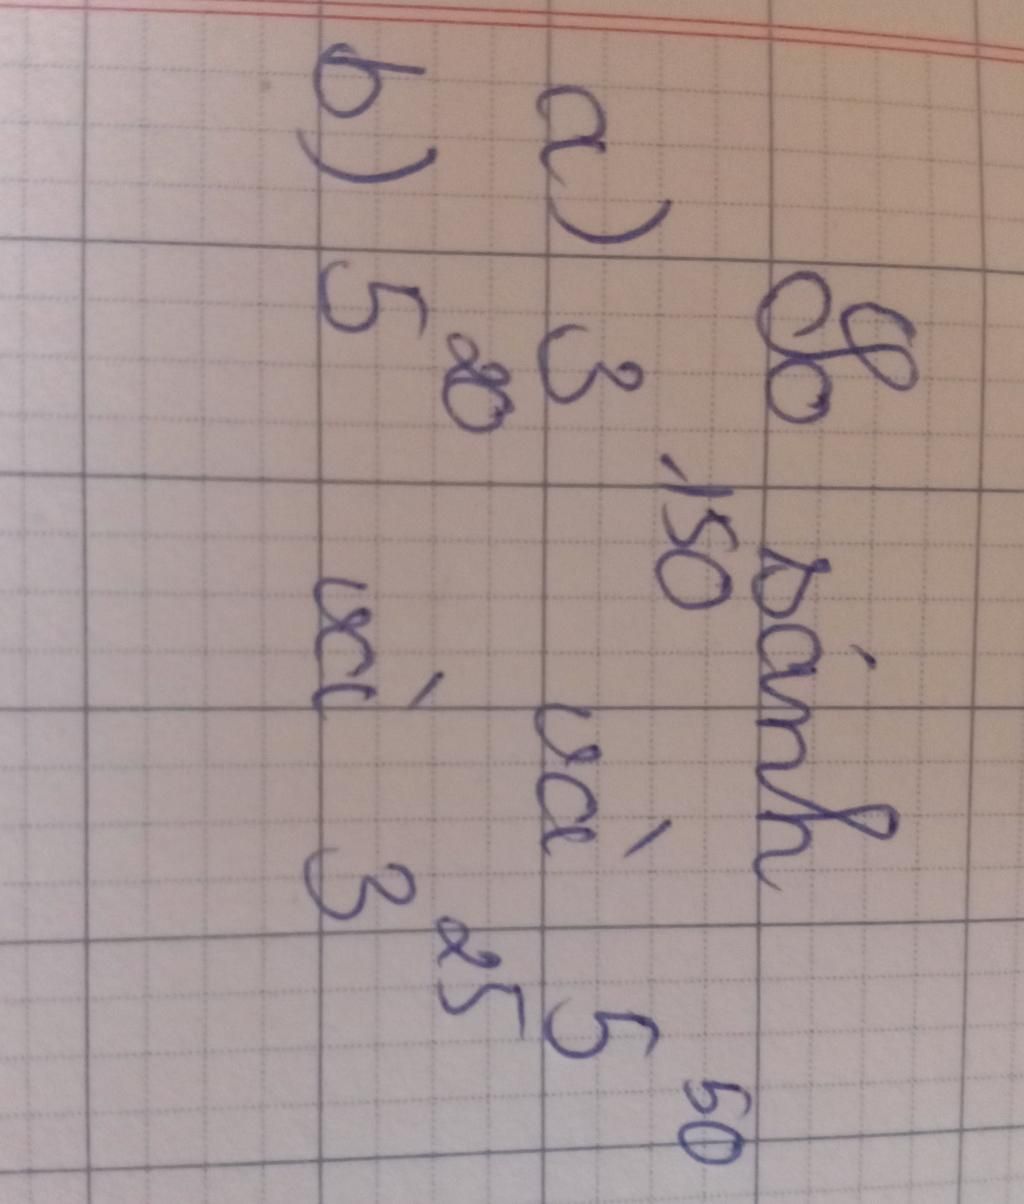 So sánh
a) 3^150 và 5^50
b) 5^20 và 3^25